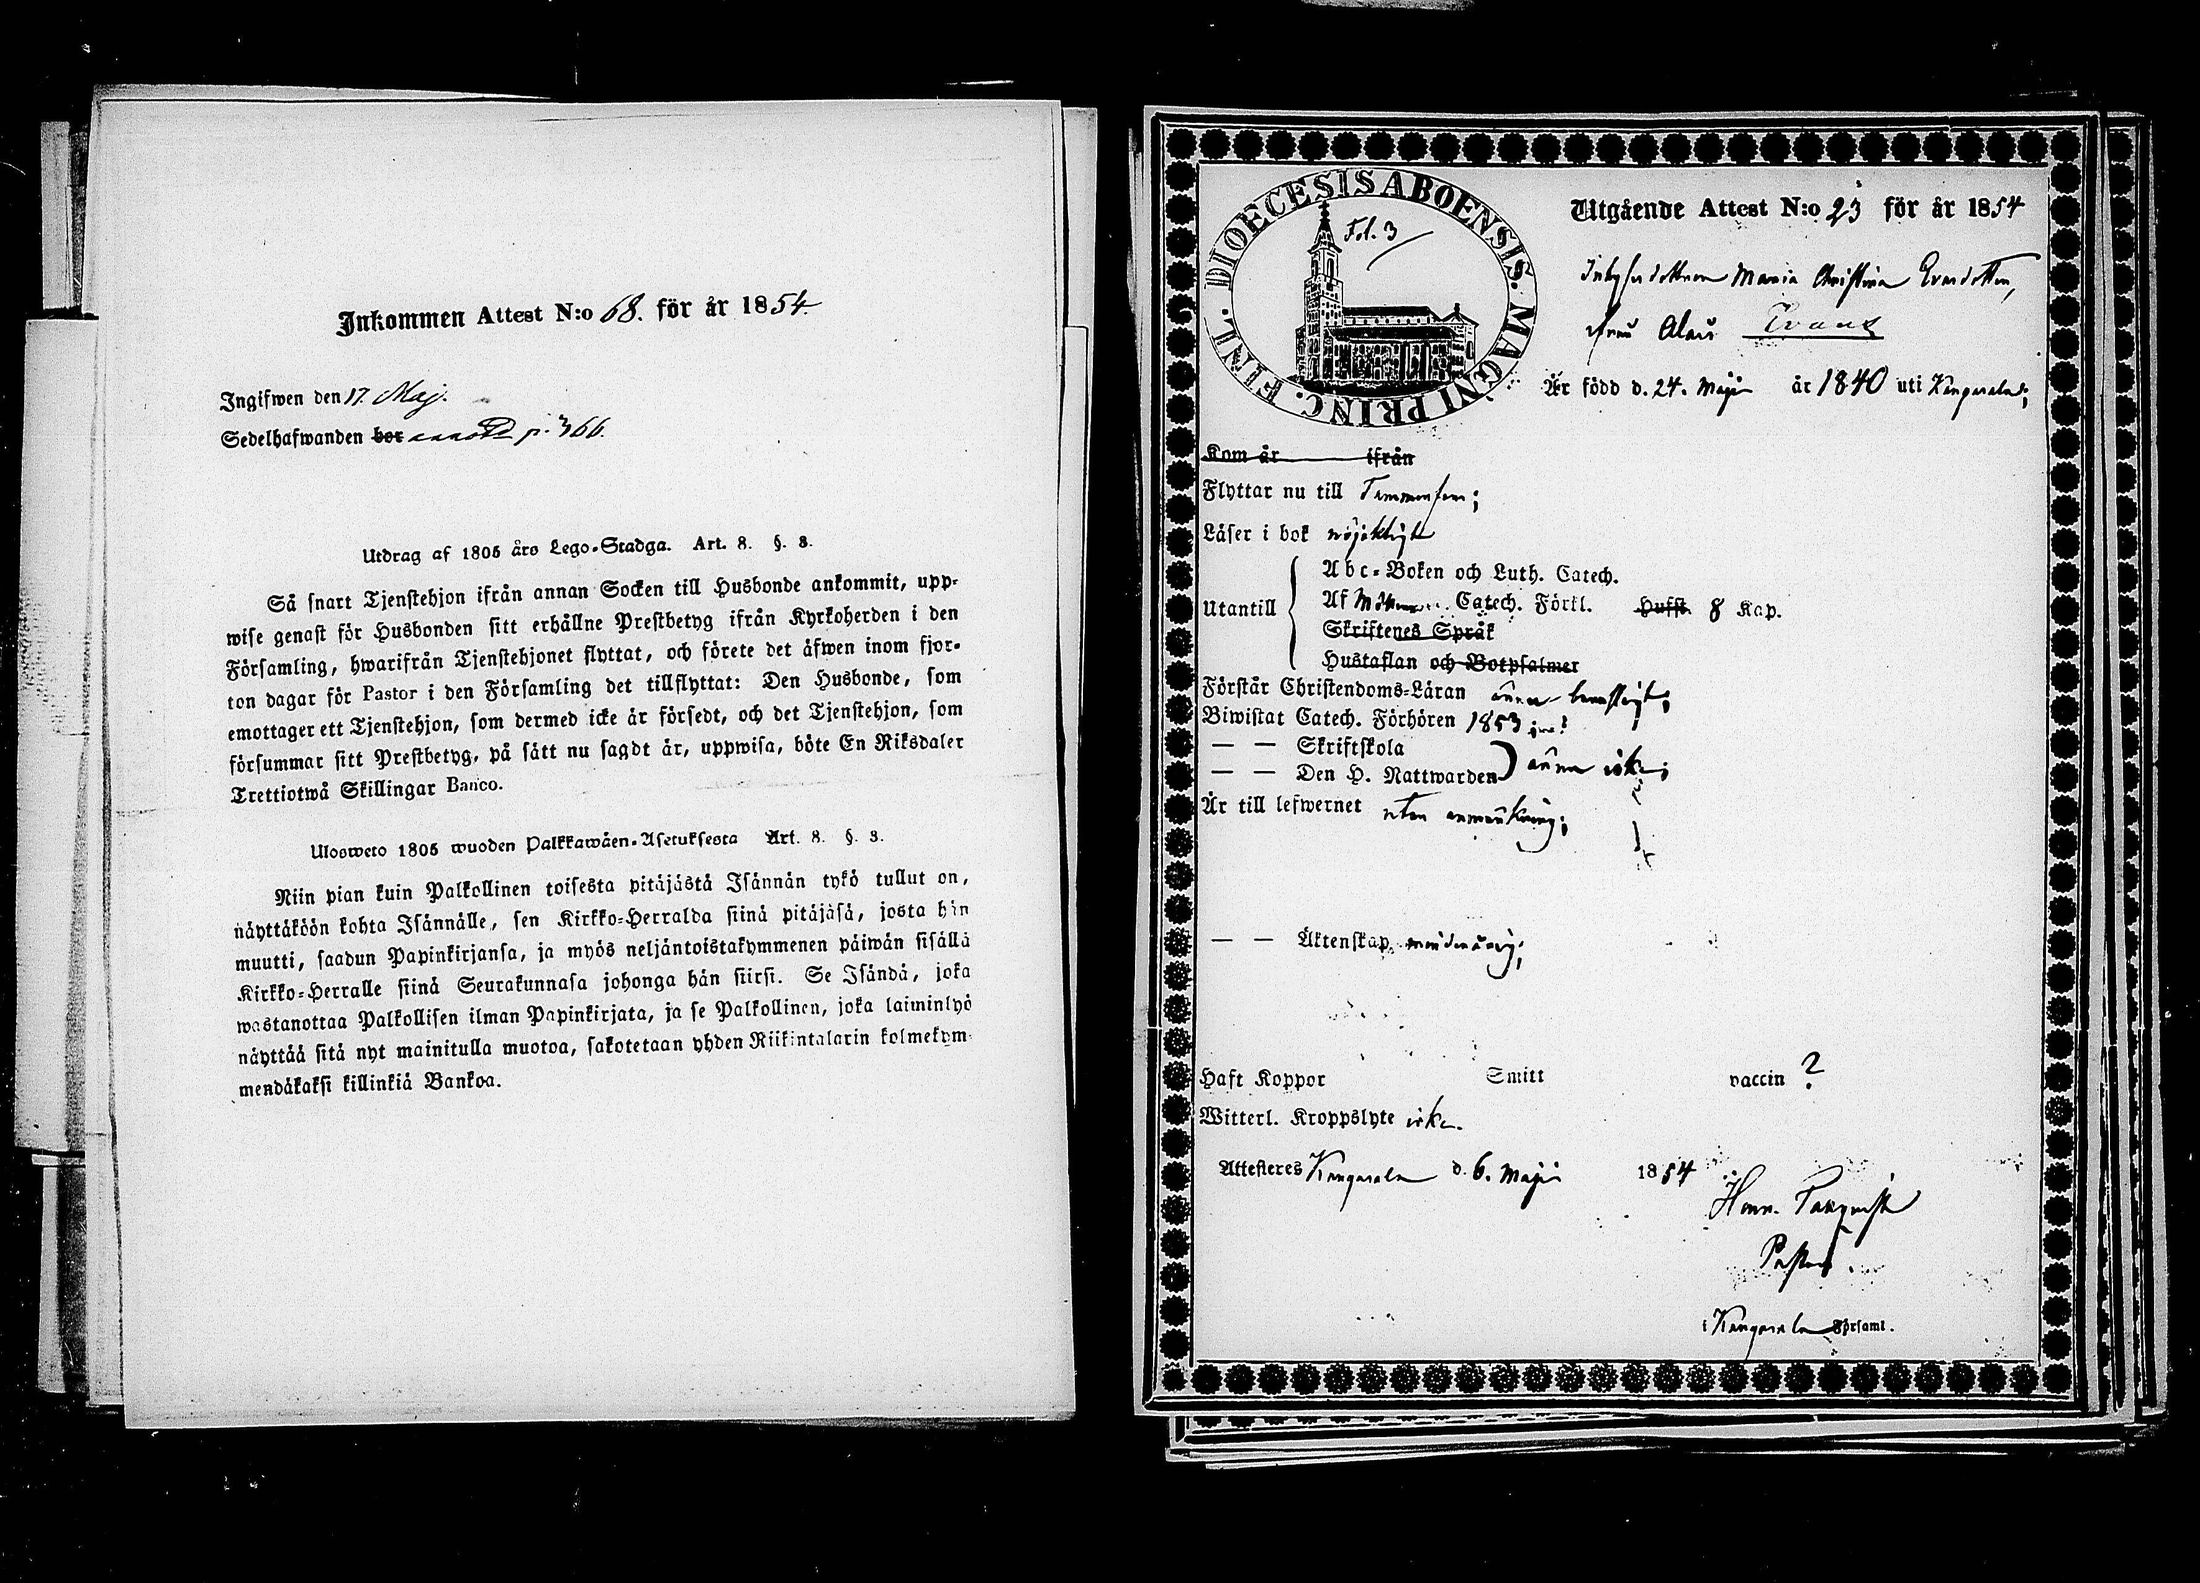 Inkommen Attest N:o 68. för år 1854.
Ingifwen den 17. Maj.
Sedelhafwanden bor p. 366.
Utdrag af 1805 års Lego-Stadga. Art. 8. §. 3.
Så snart Tjenstehjon ifrån annan Socken till Husbonde ankommit, upp-
wise genast för Husbonden sitt erhållne Prestbetyg ifrån Kyrkoherden i den
Församling, hwarifrån Tjenstehjonet flyttat, och förete det äfwen inom fjor-
ton dagar för Pastor i den Församling det tillflyttat: Den Husbonde, som
emottager ett Tjenstehjon, som dermed icke är försedt, och det Tjenstehjon, som
försummar sitt Prestbetyg, på sätt nu sagdt är, uppwisa, böte En Riksdaler
Trettiotwå Skillingar Banco.
Ulosweto 1805 wuoden Palkkawäen-Asetuksesta Art. 8. §. 3.
Niin pian kuin Palkollinen toisesta pitäjästä Isännän tykö tullut on,
näyttäköön kohta Isännälle, sen Kirkko-Herralda siinä pitäjäsä, josta hän
muutti, saadun Papinkirjansa, ja myös neljäntoistakymmenen päiwän sisällä
Kirkko-Herralle siinä Seurakunnasa johonga hän siirsi. Se Isändä, joka
wastanottaa Palkollisen ilman Papinkirjata, ja se Palkollinen, joka laiminlyö
näyttää sitä nyt mainitulla muotoa, sakotetaan yhden Riikintalarin kolmekym-
mendäkaksi killinkiä Bankoa.
DIOECESIS ABOENSIS. MAGNI PRINC. FINL.
Fol. 3
Utgående Attest N:o 23 för år 1854
Maria Christina Evasdotter,
från Alais
Är född d. 24. Maji år 1840 uti Kangasala;
Kom år ifrån
Flyttar nu till Tammerfors;
Läser i bok nöjaktigt
Utantill
Abc-Boken och Luth. Catech.
Af Catech. Förkl. Hufst. 8 Kap.
Skriftenes Språk
Hustaflan och Botpsalmer
Förstår Christendoms-Läran ännu
Biwistat Catech. Förhören 1853
— — Skriftskola
— — Den H. Nattwarden ännu icke;
Är till lefwernet utan anmärkning;
— — Äktenskap minderårig;
Haft Koppor Smitt vaccin ?
Witterl. Kroppslyte icke.
Attesteres Kangasala d. 6. Maji 1854
Henr.
Pastor.
i Kangasala Församl.